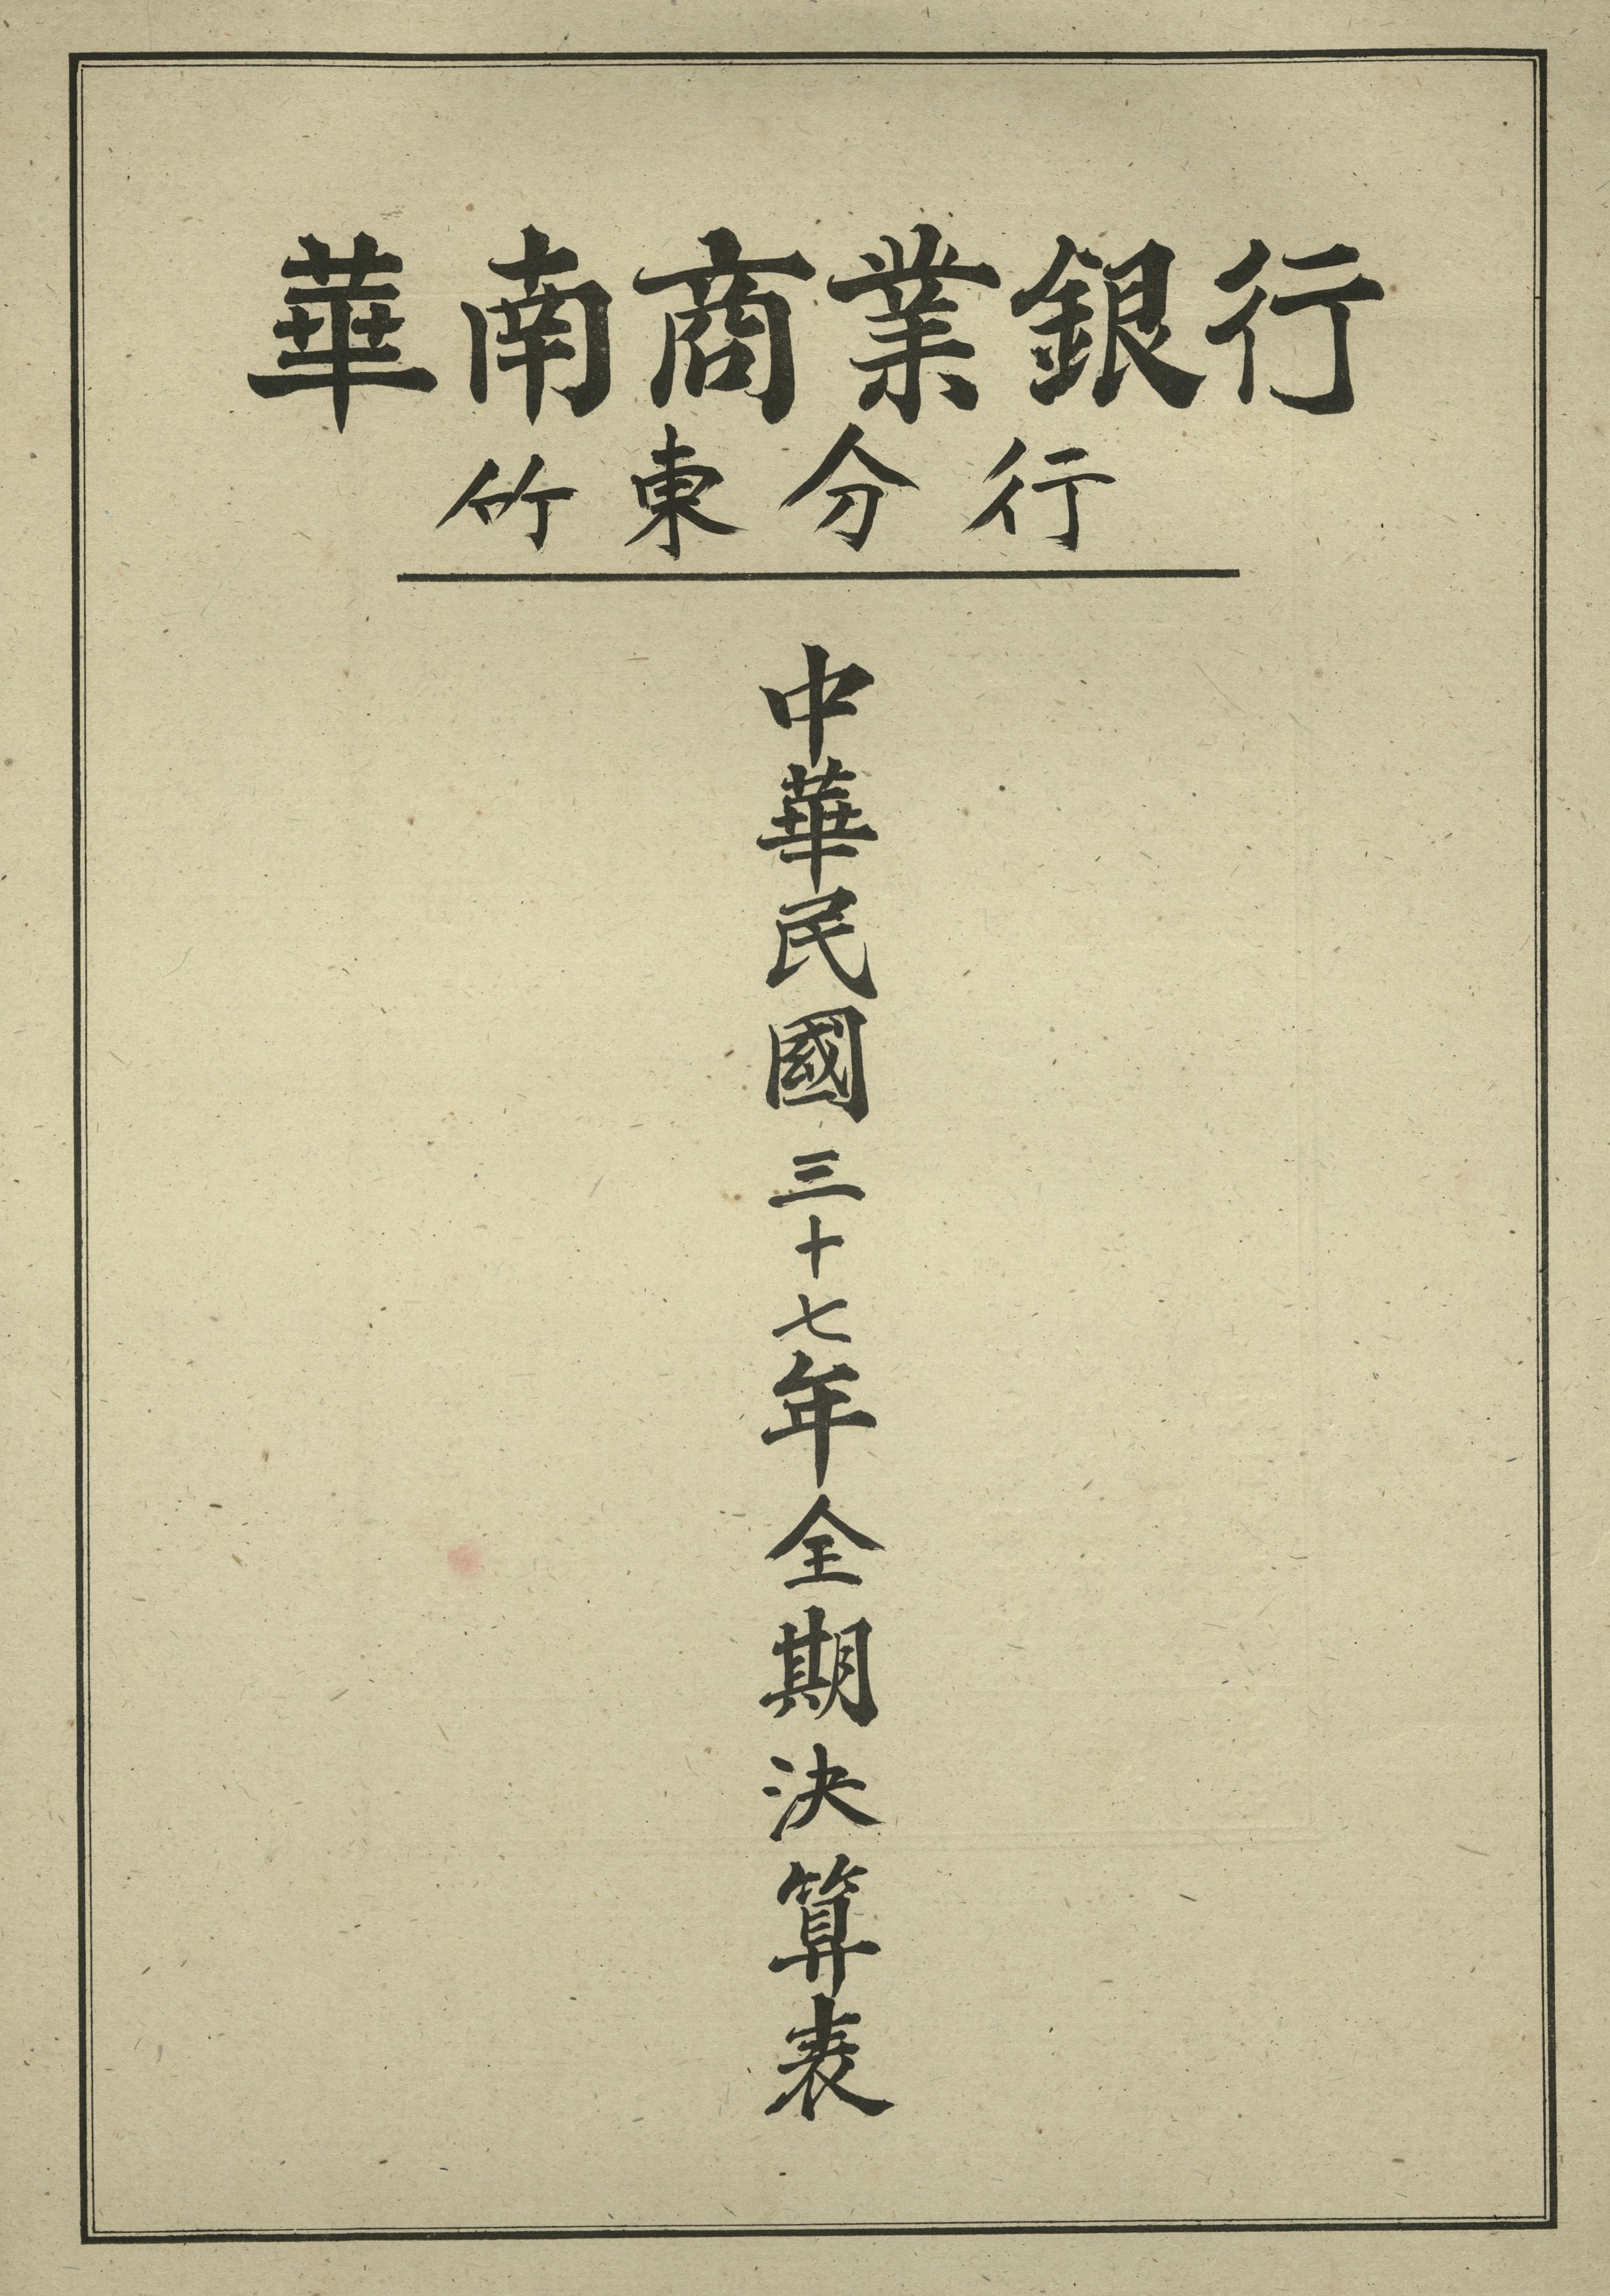 華南商業銀行
竹東分行
中華民國三十七年全期決算表